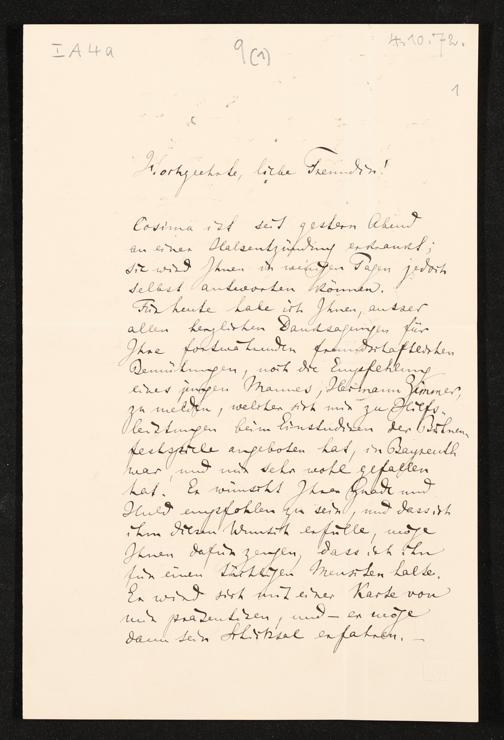 I A 4 a
9(1)
4.10.72.
1
Hochgeehrte, liebe Freundin!
Cosima ist seit gestern Abend
an einer Halsentzündung erkrankt;
sie wird Ihnen in wenigen Tagen jedoch
selbst antworten können.
Für heute habe ich Ihnen, ausser
allen herzlichen Danksagungen für
Ihre fortwährenden freundschaftlichen
Bemühungen, noch die Empfehlung
eines jungen Mannes, Hermann Zimmer,
zu melden, welcher sich mir zu Hilfs-
leistungen beim Einstudiren der Bühnen
festspiele angeboten hat, in Bayreuth
war, und mir sehr wohl gefallen
hat. Er wünscht Ihrer Gnade und
Huld empfohlen zu sein, und dass ich
ihm diesen Wunsch erfülle, möge
Ihnen dafür zeugen, dass ich ihn
für einen tüchtigen Menschen halte.
Er wird sich mit einer Karte von
mir präsentiren, und – er möge
dann sein Schicksal erfahren. —